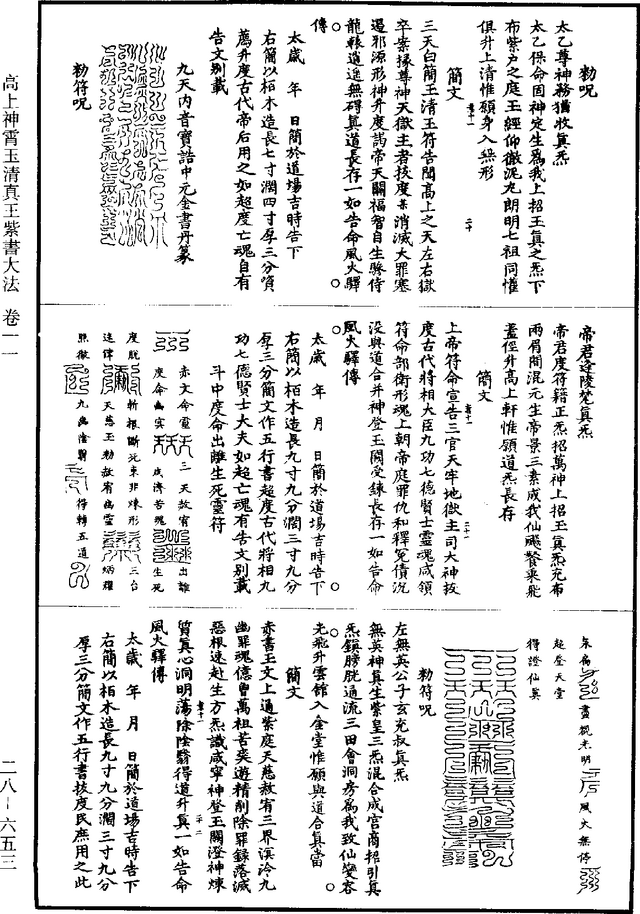 高上神霄玉清真王紫書大法 卷一一
二八－六五三
勑呪
太乙尊神務猶收真炁
太乙保命固神定生爲我上招玉真之炁下
布紫户之庭玉經仰徹泥丸朗明七祖同懽
俱升上清惟願身入無形
簡文
三天白簡玉清玉符告開高上之天左右獄
卒案掾尊神天獄主者拔度某消滅大罪塞
遏邪源形神升度謁帝天關福智自生驂侍
龍轅逍遥無礙真道長存一如告命風火驛
傳
太歲 年 日簡於道場吉時告下
右簡以栢木造長七寸濶四寸厚三分資
薦升度古代帝后用之如超度亡魂自有
告文别載
九天内音寶誥中元金書丹篆
勑符呪
帝君逢陵梵真炁
帝君度符籍正炁招萬神上招玉真炁充布
兩眉間混元生帝景三素成我仙飇餐乘飛
蓋徑升高上軒惟願道炁長存
簡文
上帝符命宣告三官天牢地獄主司大神拔
度古代將相大臣九功七德賢士靈魂咸領
符命部衛形魂上朝帝庭罪仇和釋寃債沉
没與道合并神登玉闕受鍊長存一如告命
風火驛傳
太歲 年 月 日簡於道場吉時告下
右簡以栢木造長九寸九分濶三寸九分
厚三分簡文作五行書超度古代將相九
功七德賢士大夫如超亡魂有告文别載
斗中度命出離生死靈符
赤文命靈 三天敕宥 出離
度命幽冥 成濟苦魂 生死
度脱 斬根斷死束非煉形 三台
達律 天慈玉勑敕宥幽靈 炳耀
照徹 九幽陰翳 得轉五道
永爲 晝覩光明 風火無停
超登天堂
得證仙真
勑符呪
左無英公子玄充叔真炁
無英神真生紫皇三炁混合成宫商招引真
炁鎮膀胱通流三田會洞房爲我致仙變容
光飛升雲館入金堂惟願與道合真當
簡文
赤書玉文上通紫庭天慈敕宥三界溟泠九
幽罪魂億曾萬祖苦爽遊精削除罪録落滅
惡根速赴生方炁識咸寧神登玉闕澄神煉
質真心洞明蕩除陰翳得道升真一如告命
風火驛傳
太歲 年 月 日簡於道場吉時告下
右簡以栢木造長九寸九分濶三寸九分
厚三分簡文作五行書拔度民庶用之此